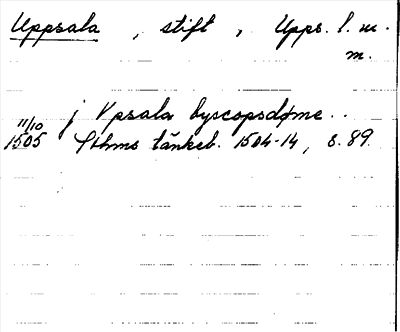 Uppsala, stift, Upps. l. m.
m.
11/10 j Vpsala byscopsdøme..
1505 Sthms tänkeb. 1504-14, s. 89.